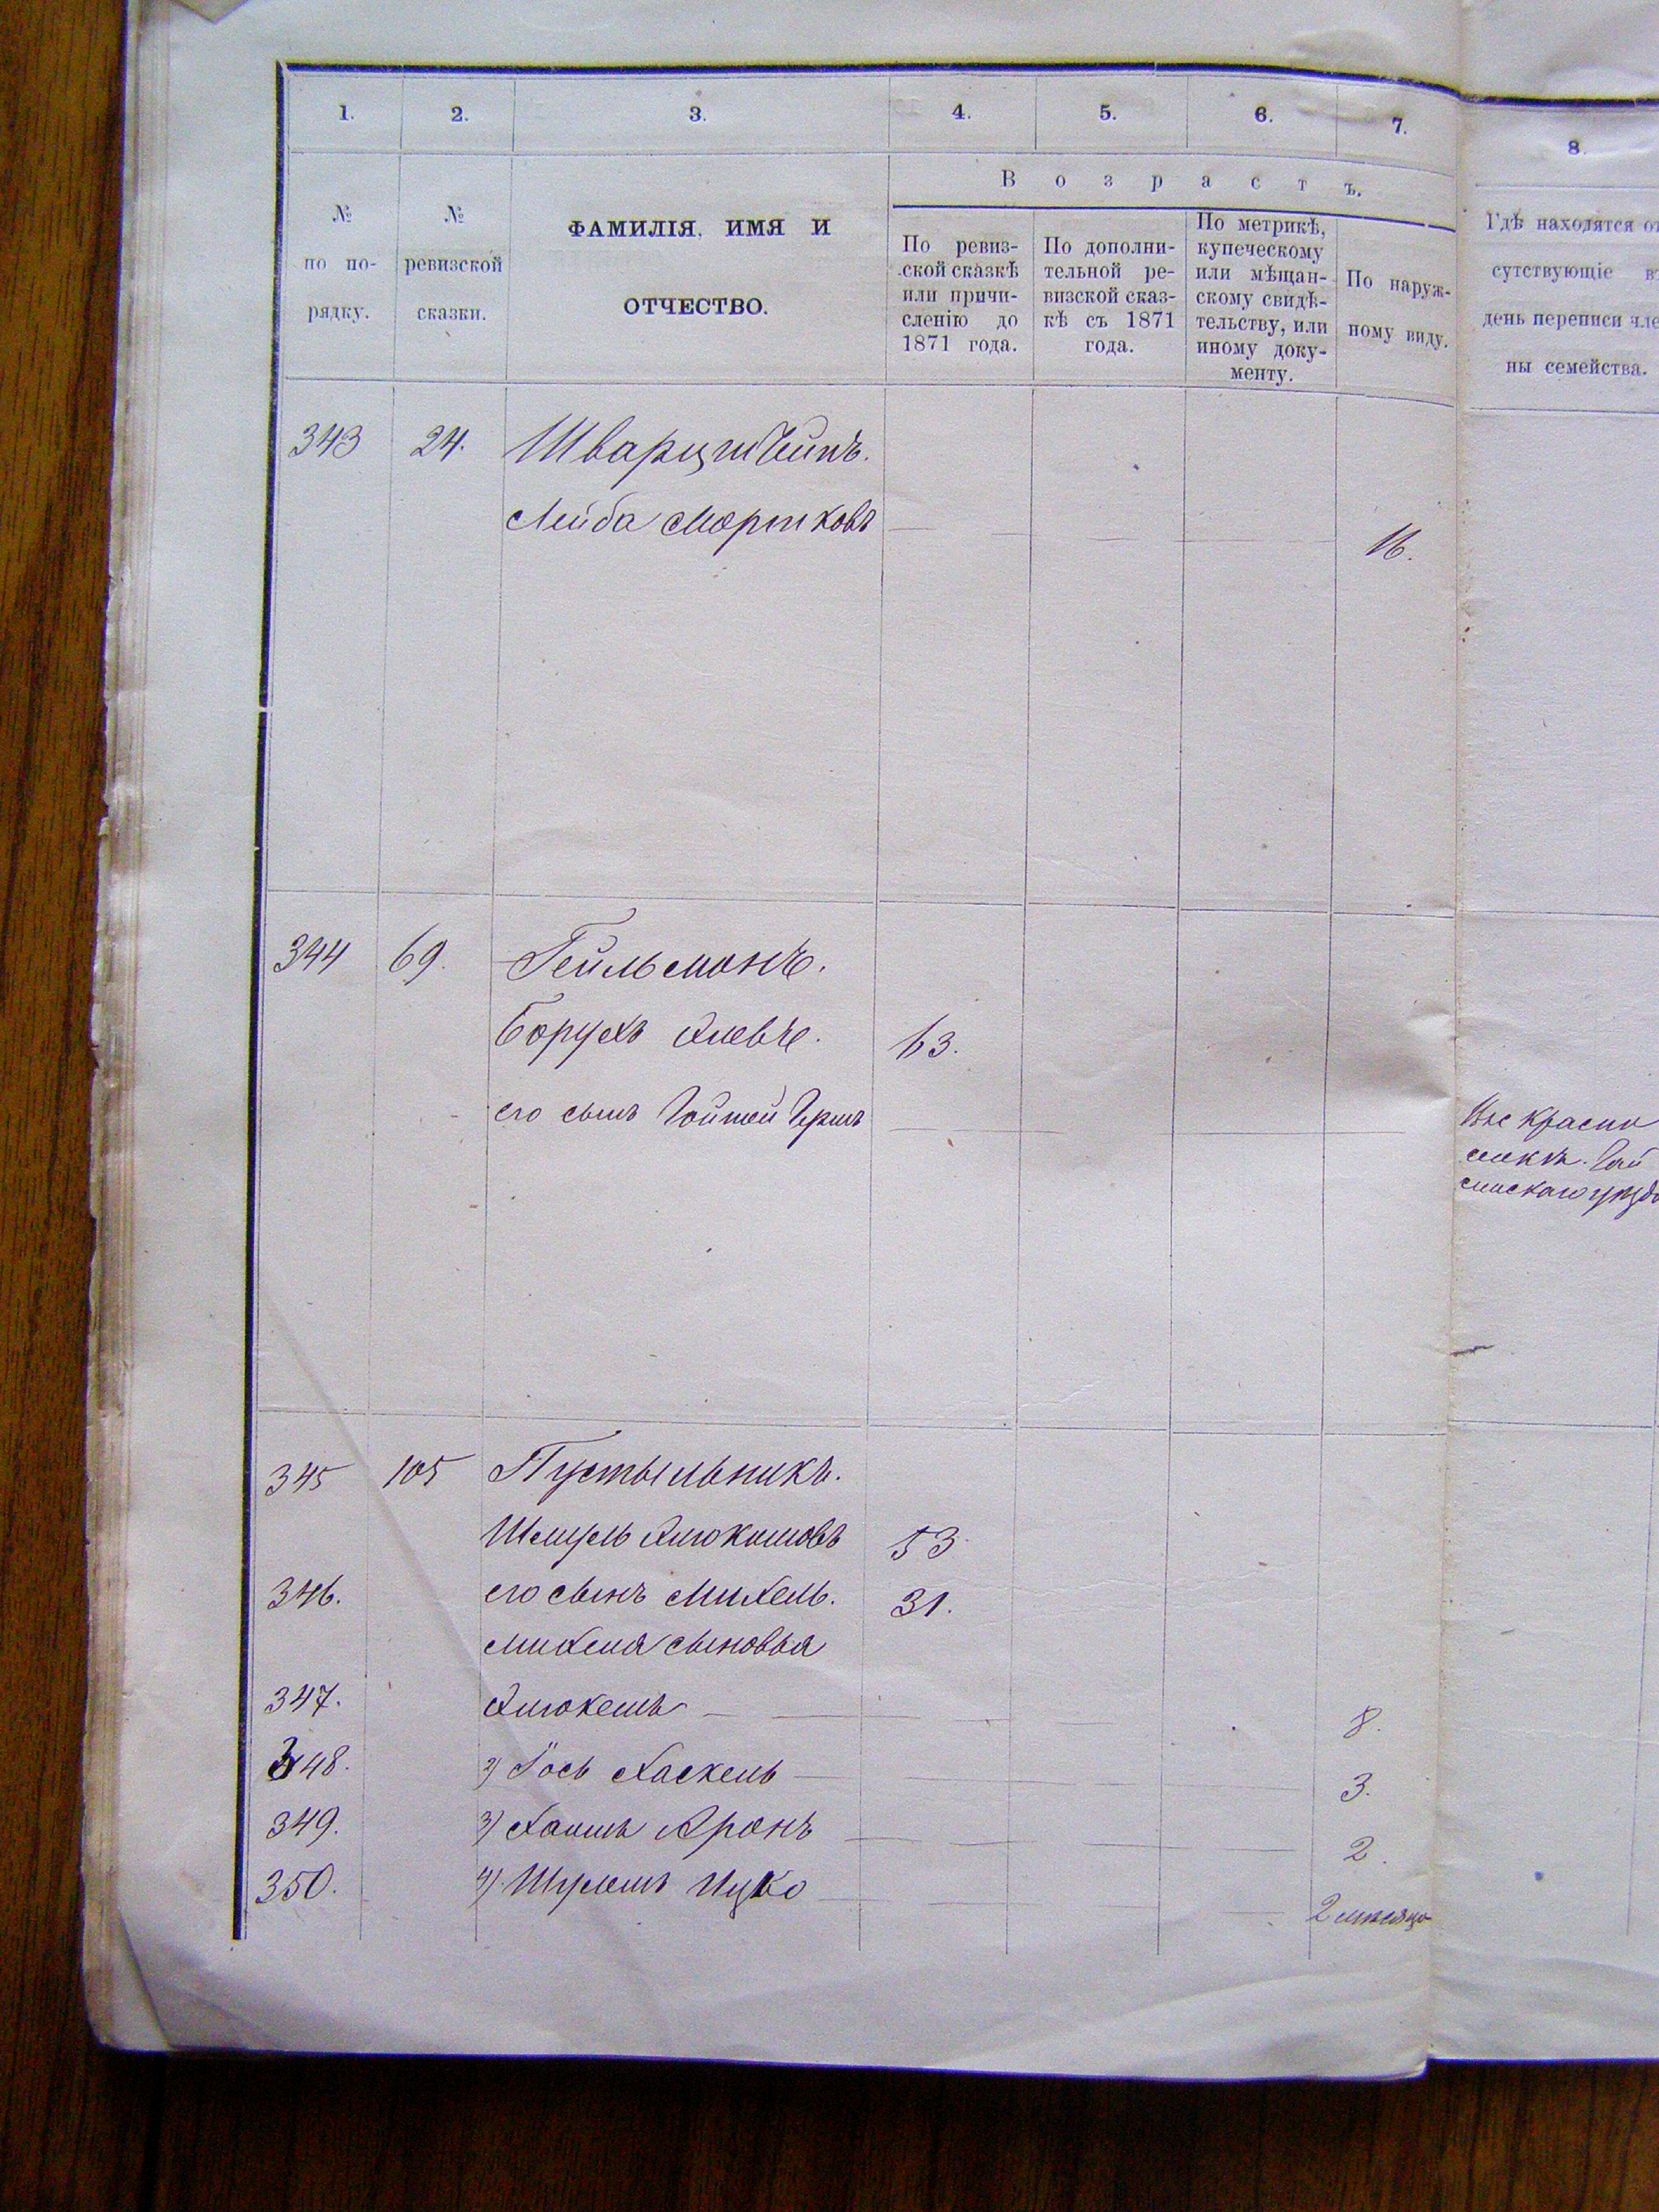 1. 2. 3. 4. 5. 6. 7. 8.
Возрастъ.
№ по порядку.
№ ревизской сказки.
ФАМИЛІЯ, ИМЯ И
ОТЧЕСТВО.
По ревиз-
ской сказкѣ
или причи-
сленію до
1871 года.
По дополни-
тельной ре-
визской сказ-
кѣ съ 1871
года.
По метрикѣ,
купеческому
или мѣщан-
скому свидѣ-
тельству, или
иному доку-
менту.
По наруж-
ному виду.
Гдѣ находятся от
сутствующіе въ
день переписи чле
ны семейства.
343 24. Шварцштейнъ.
Лейба Мортковъ 16.
344 69.
Борухъ 63.
его сынъ
345 105 Пустыльникъ.
Шмуль 53
346. его сынъ Михель. 31.
Михеля сыновья
347. 8.
348. 2) Іось Хаскель 3.
349. 3) Хаимъ Аронъ 2.
350. 4) Шулимъ Ицко 2 мѣсяца